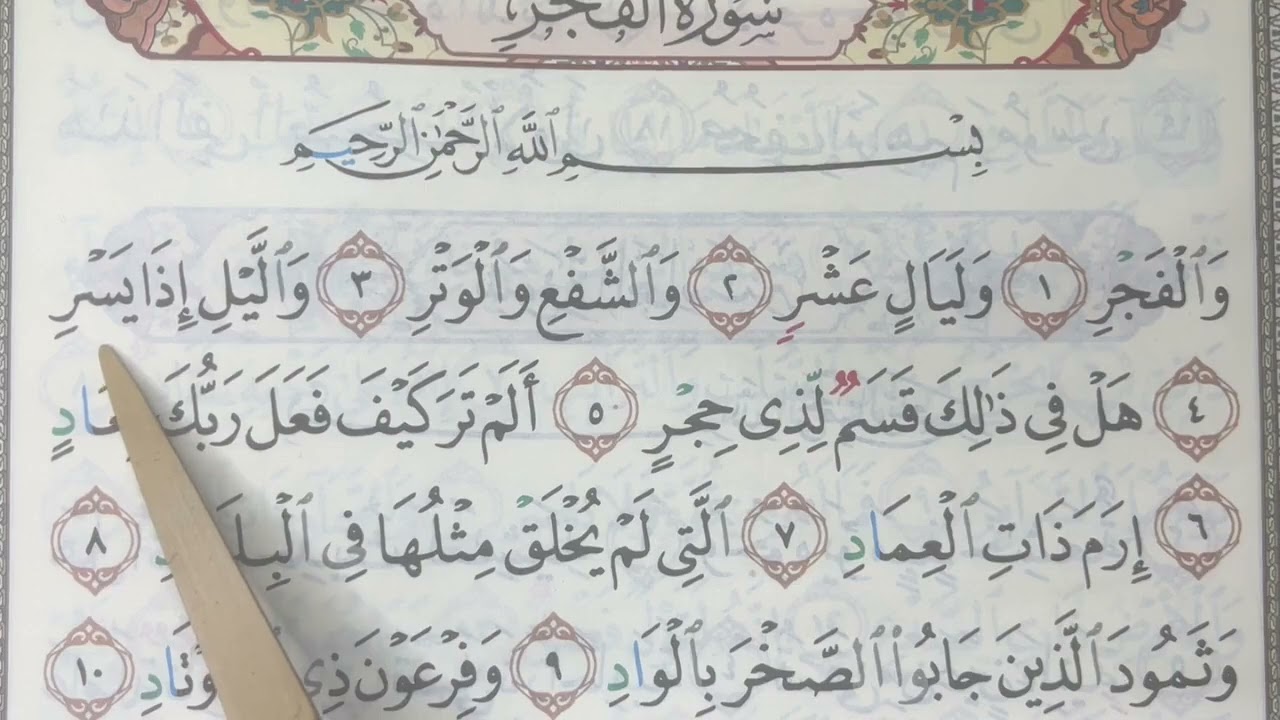 سُورَةُ الفَجْرِ
بِسْمِ ٱللَّهِ ٱلرَّحْمَٰنِ ٱلرَّحِيمِ
وَٱلْفَجْرِ ١ وَلَيَالٍ عَشْرٍ ٢ وَٱلشَّفْعِ وَٱلْوَتْرِ ٣ وَٱلَّيْلِ إِذَا يَسْرِ
٤ هَلْ فِى ذَٰلِكَ قَسَمٌ لِّذِى حِجْرٍ ٥ أَلَمْ تَرَ كَيْفَ فَعَلَ رَبُّكَ
٦ إِرَمَ ذَاتِ ٱلْعِمَادِ ٧ ٱلَّتِى لَمْ يُخْلَقْ مِثْلُهَا فِى ٱلْبِلَٰدِ ٨
وَثَمُودَ ٱلَّذِينَ جَابُوا۟ ٱلصَّخْرَ بِٱلْوَادِ ٩ وَفِرْعَوْنَ ذِى ١٠